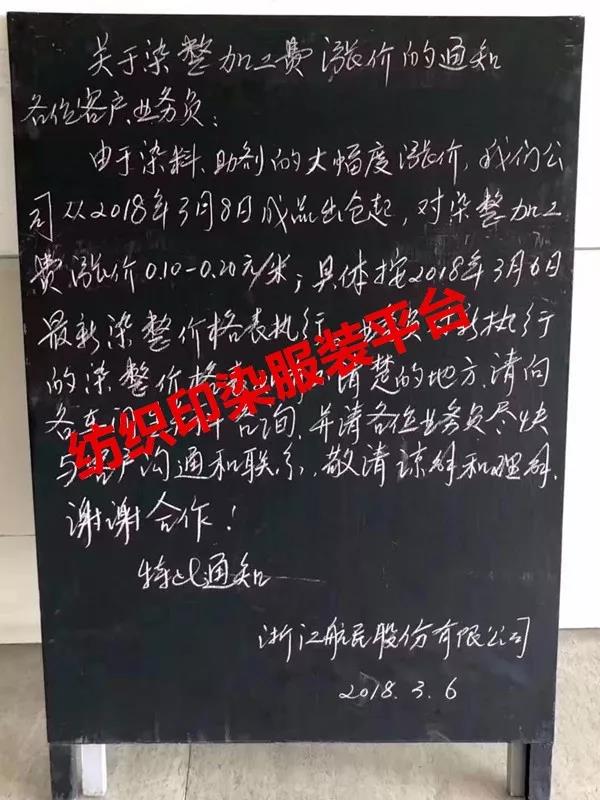 关于染整加工费涨价的通知
各位客户、业务员:
由于染料、助剂的大幅度涨价,我们公
司从2018年3月8日成品出仓起,对染整加工
费涨价0.10-0.20元/米;具体按2018年3月6日
最新染整价格表执行。业务员
执行
的染整价格
清楚的地方,请向
各车间
咨询,并请各位业务员尽快
与客户沟通和联系,敬请谅解和理解,
谢谢合作!
特此通知
浙江航民股份有限公司
2018.3.6
纺织印染服装平台